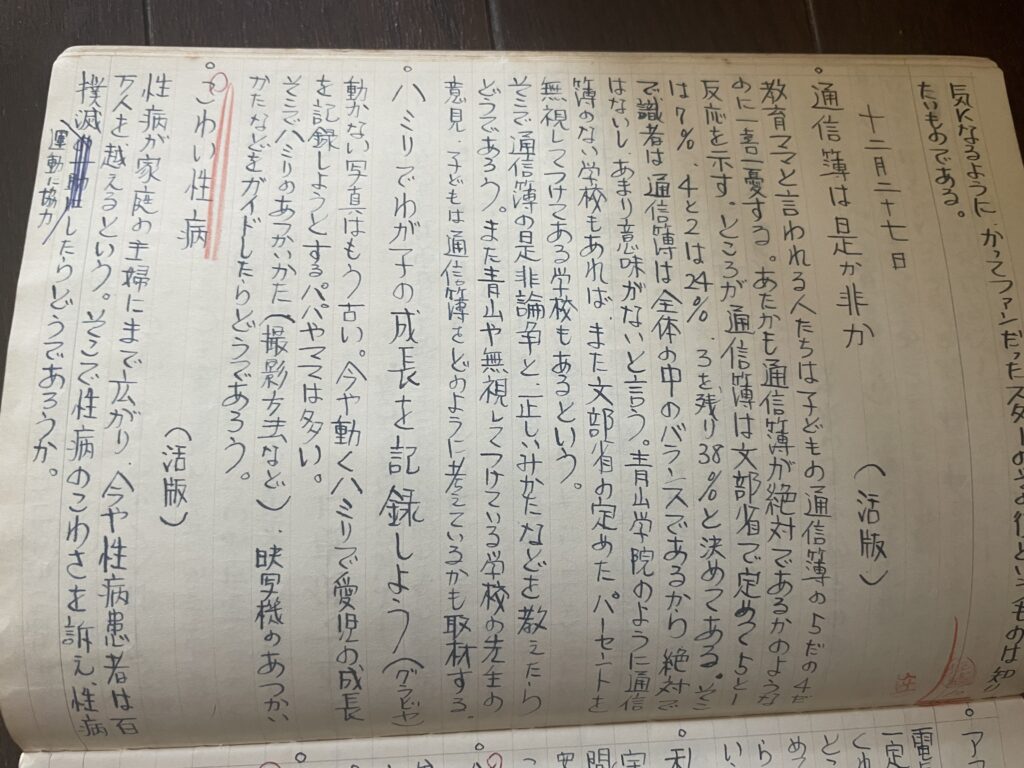 気になるように、かつてファンだったスターのその後というものは知り
たいものである。
十二月二十七日
。通信簿は是か非か（活版）
教育ママと言われる人たちは子どもの通信簿の5だの4だ
のに一喜一憂する。あたかも通信簿が絶対であるかのような
反応を示す。ところが通信簿は文部省で定めて5と1
は7%、4と2は24%、3を残り38%と決めてある。そこ
で識者は通信簿は全体の中のバランスであるから絶対で
はないし、あまり意味がないと言う。青山学院のように通信
簿のない学校もあれば、また文部省の定めたパーセントを
無視してつけてある学校もあるという。
そこで通信簿の是非論争と、正しいみかたなどを教えたら
どうであろう。また青山や無視してつけている学校の先生の
意見、子どもは通信簿をどのように考えているかも取材する。
。ハミリでわが子の成長を記録しよう（グラビヤ）
動かない写真はもう古い。今や動くハミリで愛児の成長
を記録しようとするパパやママは多い。
そこでハミリのあつかいかた（撮影方法など）、映写機のあつかい
かたなどをガイドしたらどうであろう。
。こわい性病（活版）
性病が家庭の主婦にまで広がり、今や性病患者は百
万人を越えるという。そこで性病のこわさを訴え、性病
撲滅運動に協力したらどうであろうか。